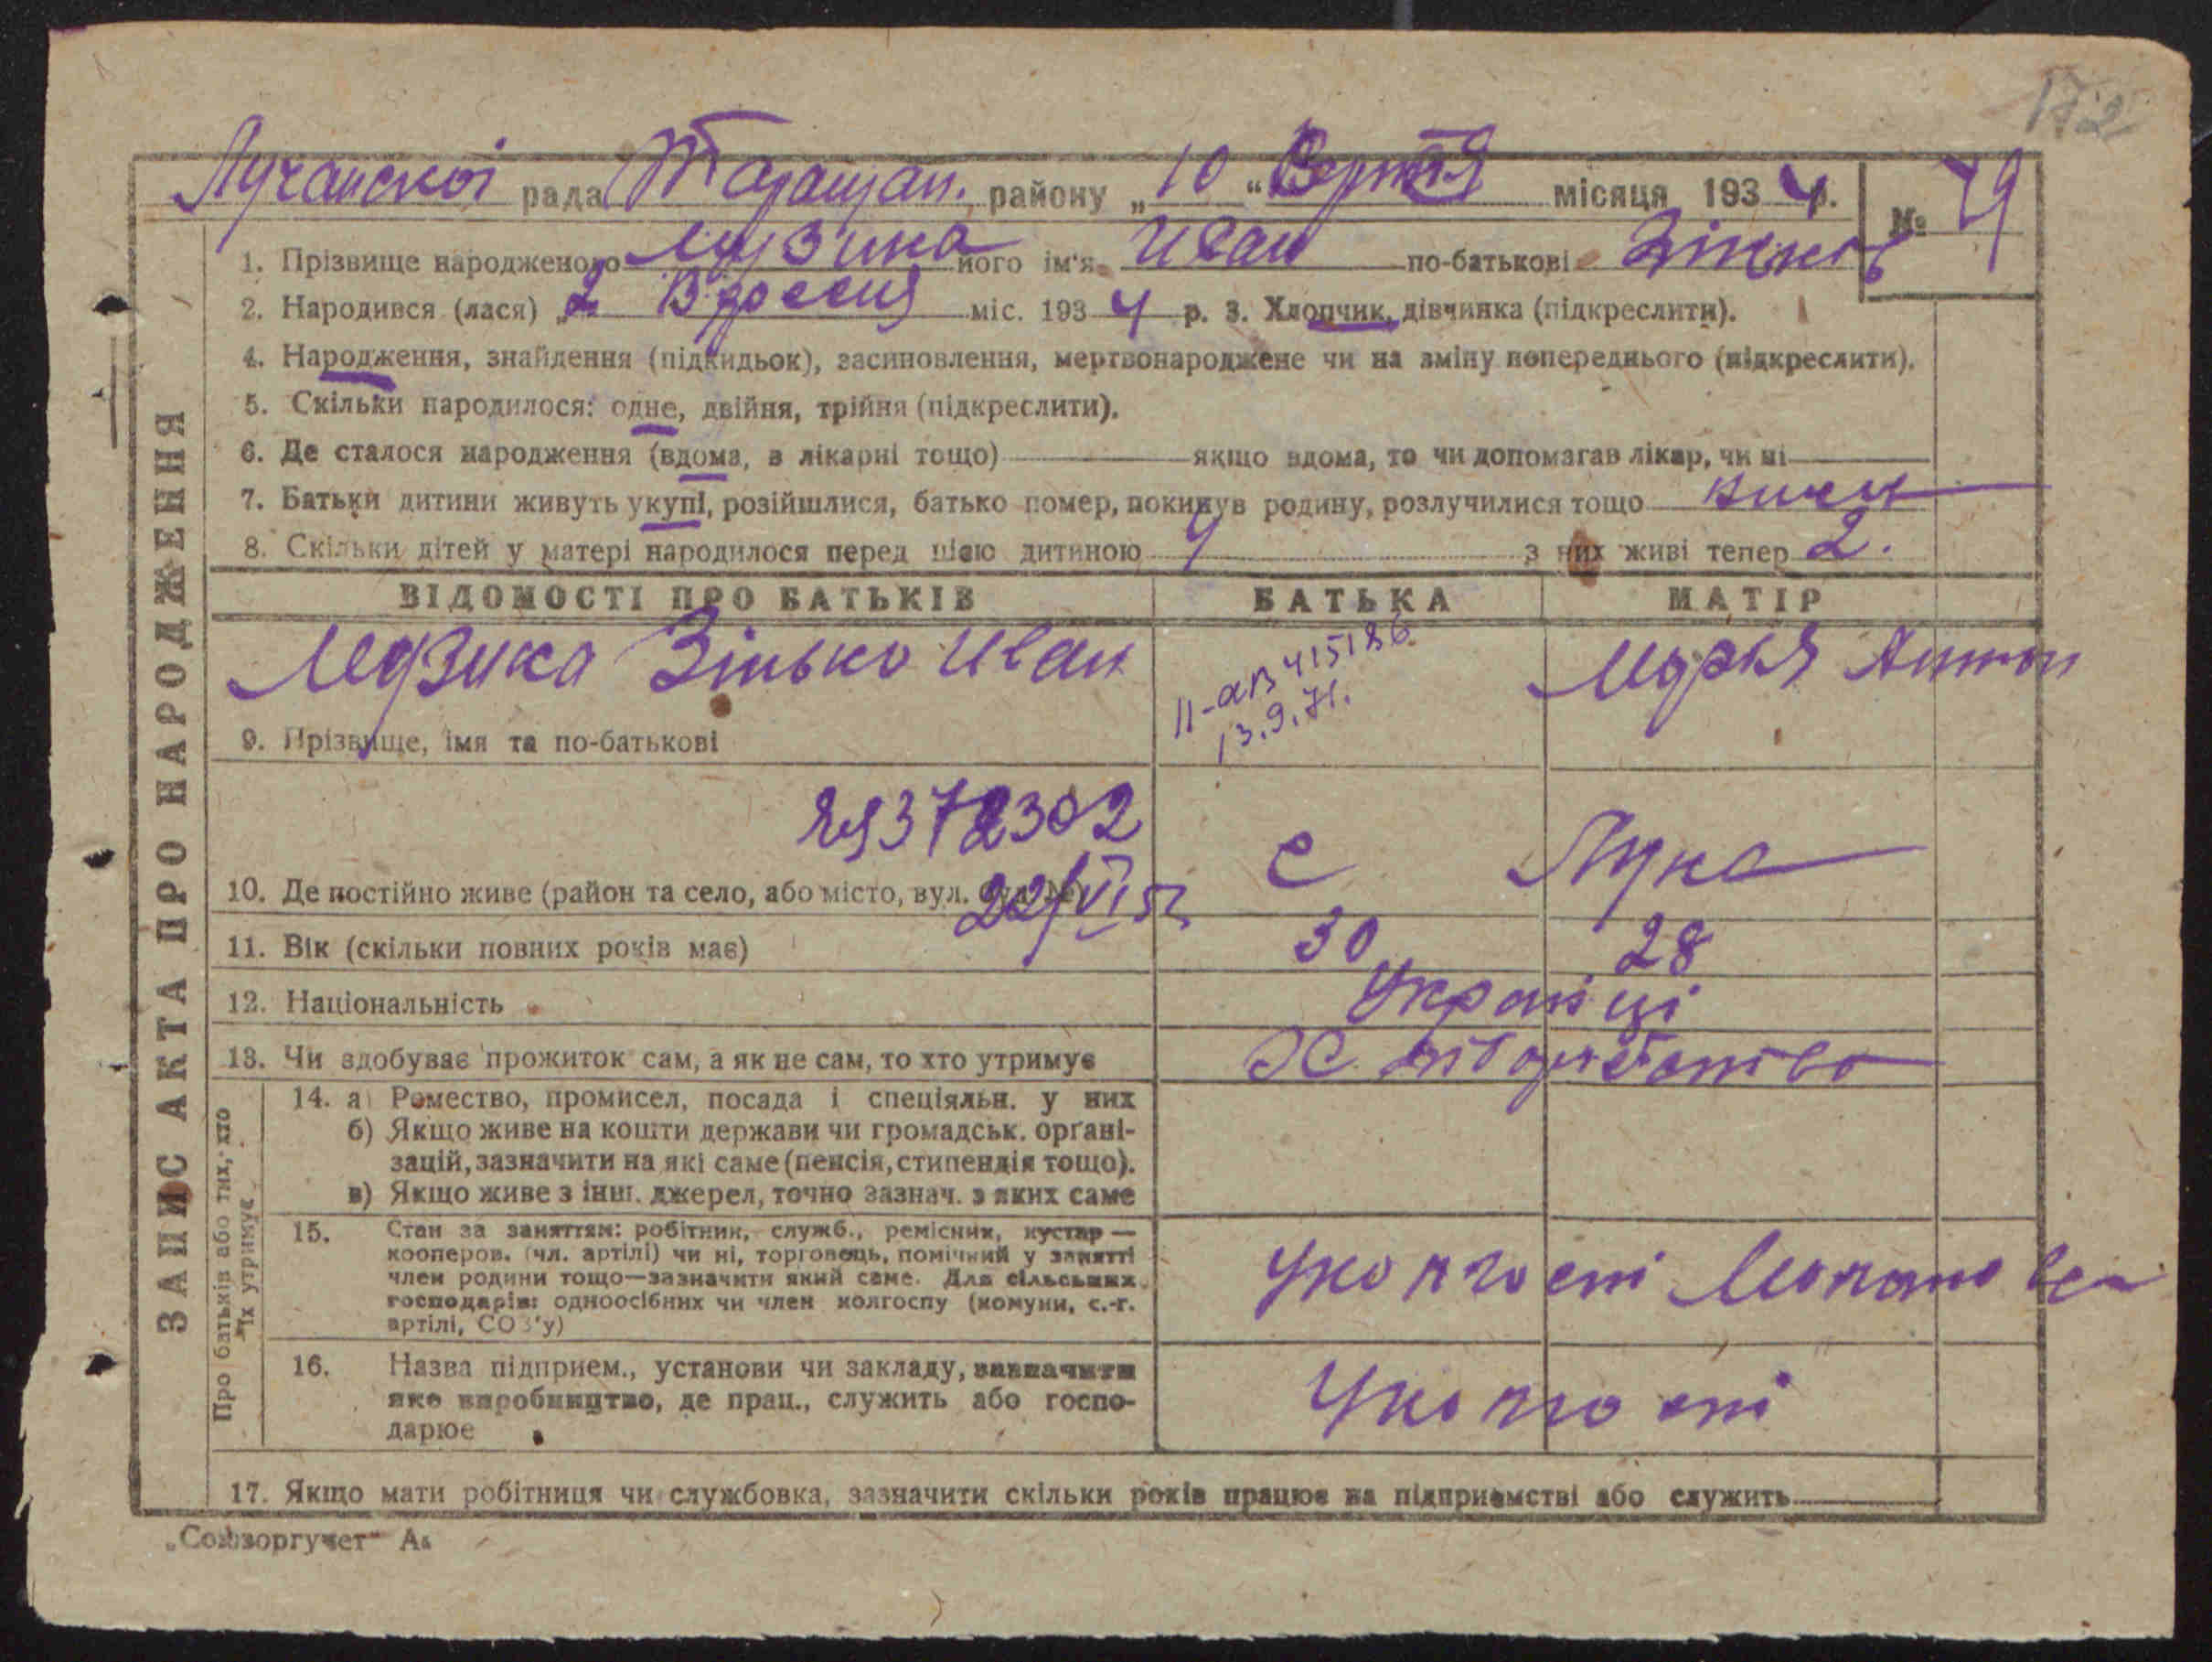 172
Лучанскоі рада Таращан. району „10“ Вертня місяця 1934 р. № 79
1. Прізвище народженого Музика його ім'я Иван по-батькові Зіньків
2. Народився (лася) „2 міс. 1934 р. 3. Хлопчик, дівчинка (підкреслити).
4. Народження, знайдення (підкидьок), засиновлення, мертвонароджене чи на зміну попереднього (підкреслити).
5. Скільки народилося: одне, двійня, трійня (підкреслити).
6. Де сталося народження (вдома, в лікарні тощо) якщо вдома, то чи допомагав лікар, чи ні
7. Батьки дитини живуть укупі, розійшлися, батько помер, покинув родину, розлучилися тощо
8. Скільки дітей у матері народилося перед цією дитиною 4 з них живі тепер 2.
ВІДОМОСТІ ПРО БАТЬКІВ БАТЬКА МАТІР
Музика Зінько Иван Марья Антон
II-АВ 415186
13.9.71.
9. Прізвище, імя та по-батькові
372302
с Лука
10. Де постійно живе (район та село, або місто, вул. буд. №)
22/VI 52
11. Вік (скільки повних років має) 30 28
12. Національність Українці
13. Чи здобуває прожиток сам, а як не сам, то хто утримує
14. а) Ремество, промисел, посада і спеціяльн. у них
б) Якщо живе на кошти держави чи громадськ. органі-
зацій, зазначити на які саме (пенсія, стипендія тощо).
в) Якщо живе з інш. джерел, точно зазнач. з яких саме
15. Стан за заняттям: робітник, служб., ремісник, кустар —
кооперов. (чл. артілі) чи ні, торговець, помічний у занятті
член родини тощо—зазначити який саме. Для сільських
господарів: одноосібних чи член колгоспу (комуни, с.-г.
артілі, СОЗ'у)
16. Назва підприєм., установи чи закладу, зазначити
яке виробництво, де прац., служить або госпо-
дарює
17. Якщо мати робітниця чи службовка, зазначити скільки років працює на підприємстві або служить
ЗАПИС АКТА ПРО НАРОДЖЕННЯ
Про батьків або тих, хто
їх утримує
„Союзоргучет“